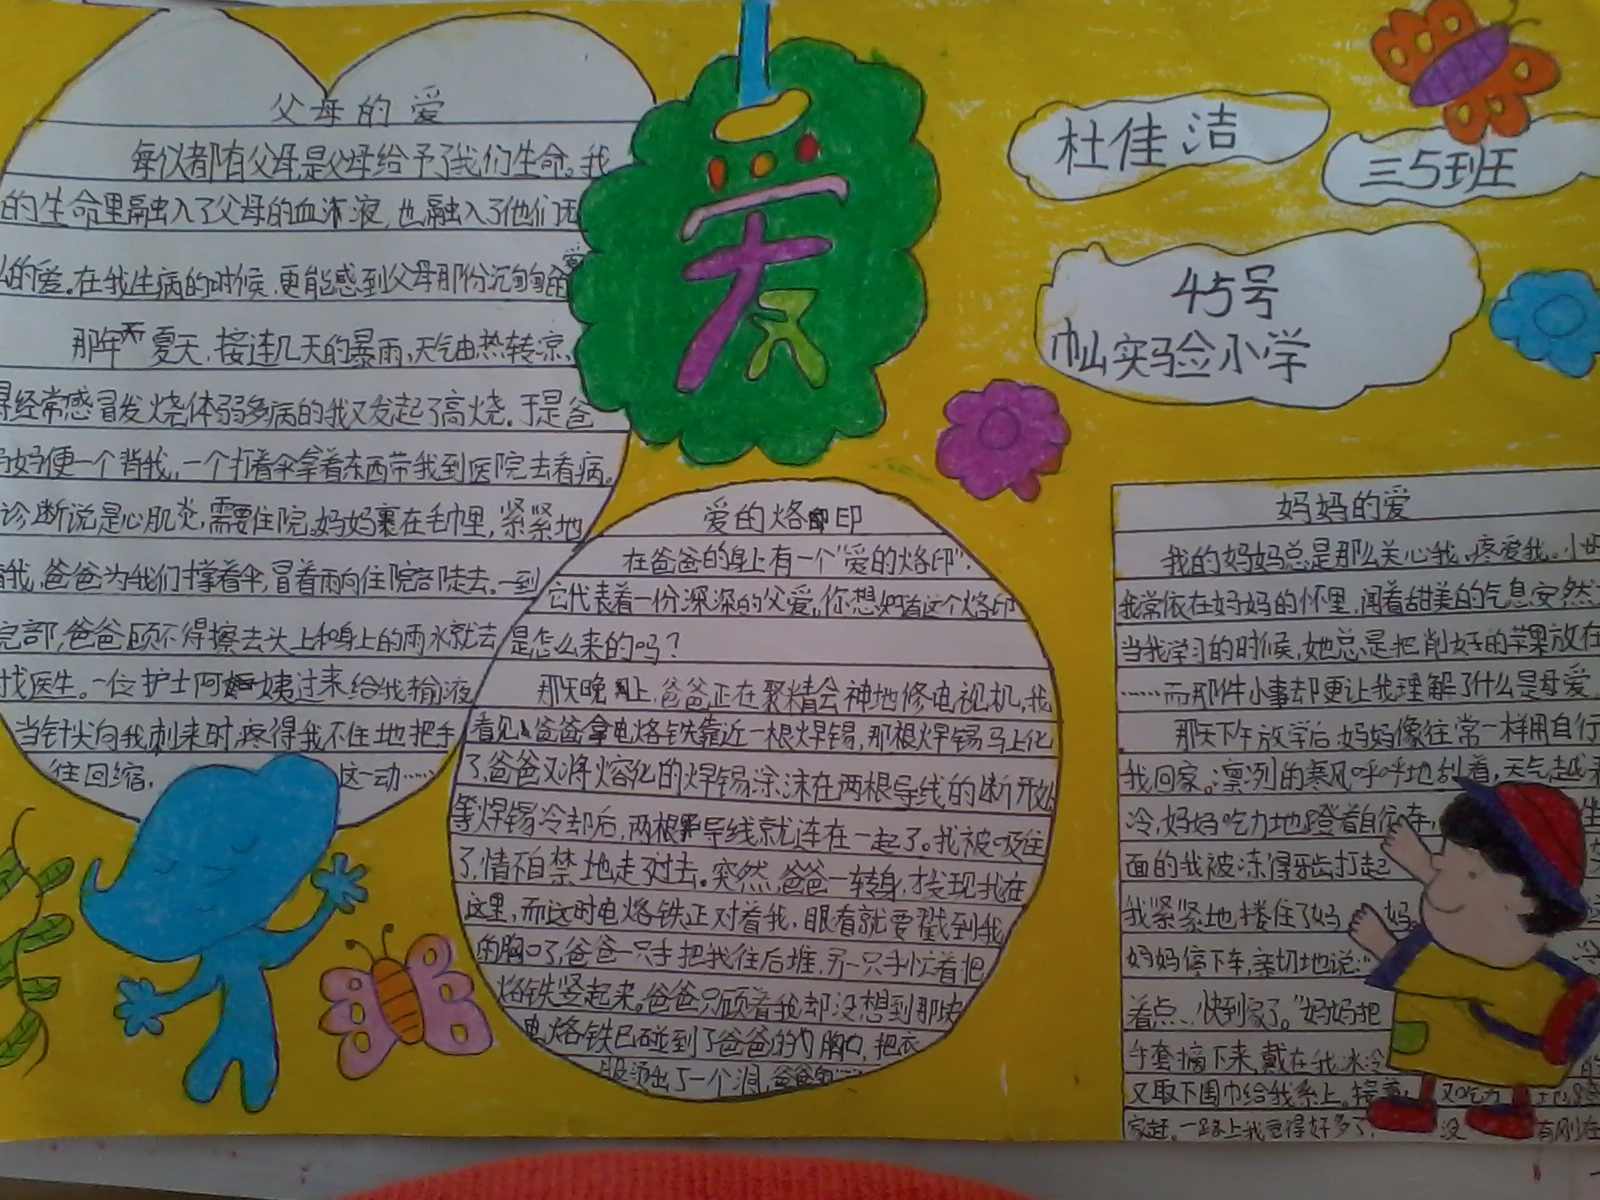 父母的爱
每以都有父母,是父母给予了我们生命。我
的生命里融入了父母的血液,也融入了他们无
的爱。在我生病的时候,更能感到父母那份沉甸甸的爱
那年夏天,接连几天的暴雨,天气由热转凉,
得经常感冒发烧体弱多病的我又发起了高烧。于是爸
妈妈便一个背我,一个打着伞拿着东西带我到医院去看病。
诊断说是心肌炎,需要住院。妈妈裹在毛巾里,紧紧地
着我,爸爸为我们撑着伞,冒着雨向住院部走去。一到
院部,爸爸顾不得擦去头上和身上的雨水就去
找医生。一位护士阿姨过来给我输液
当针尖向我刺来时,疼得我不住地把手
往回缩, 这一动……
爱
杜佳洁
三5班
45号
巾山实验小学
爱的烙印
在爸爸的身上有一个“爱的烙印”,
它代表着一份深深的父爱。你想知道这个烙印
是怎么来的吗?
那天晚上,爸爸正在聚精会神地修电视机,我
看见爸爸拿电烙铁靠近一根焊锡,那根焊锡马上化
了,爸爸又将熔化的焊锡涂沫在两根导线的断开处
等焊锡冷却后,两根导线就连在一起了。我被吸住
了,情不自禁地走了过去。突然,爸爸一转身,才发现我在
这里,而这时电烙铁正对着我,眼看就要戳到我
的胸口了,爸爸一只手把我往后推,另一只手忙着把
烙铁竖起来。爸爸只顾着我却没想到那块
电烙铁已碰到了爸爸的胸口,把衣
服烫出了一个洞,爸爸的……
妈妈的爱
我的妈妈总是那么关心我、疼爱我。小时
我常依在妈妈的怀里,闻着甜美的气息安然
当我学习的时候,她总是把削好的苹果放在
……而那件小事却更让我理解了什么是母爱
那天下午放学后,妈妈像往常一样用自行
我回家。凛冽的寒风呼呼地刮着,天气越来
冷,妈妈吃力地蹬着自行车,
面的我被冻得牙齿打起
我紧紧地搂住了妈妈
妈妈停下车,亲切地说:“
着点…快到家了。”妈妈把
手套摘下来,戴在我冰冷
又取下围巾给我系上。接着, 又吃力
家赶。一路上我觉得好多了, 没 有刚在